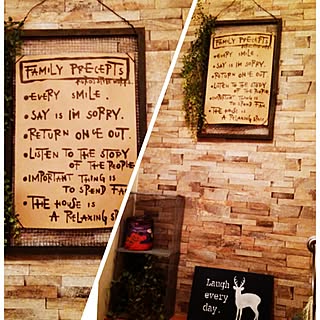 FAMILY PRECEPTS
• EVERY SMILE.
• SAY IS I'M SORRY.
• RETURN ONCE OUT.
• LISTEN TO THE STORY
OF THE PEOPLE
• IMPORTANT THING IS
TO SPEND FA
• THE HOUSE IS
A RELAXING
FAMILY PRECEPTS
• EVERY SMILE.
• SAY IS I'M SORRY.
• RETURN ONCE OUT.
• LISTEN TO THE STORY
OF THE PEOPLE
• IMPORTANT THING IS
TO SPEND FAM
• THE HOUSE IS
A RELAXING
Laugh
every
day.